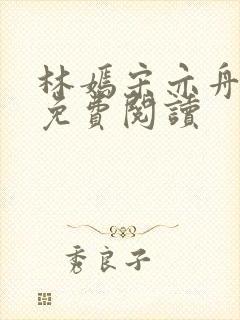 林嫣宋亦舟
免費閱讀
秀良子